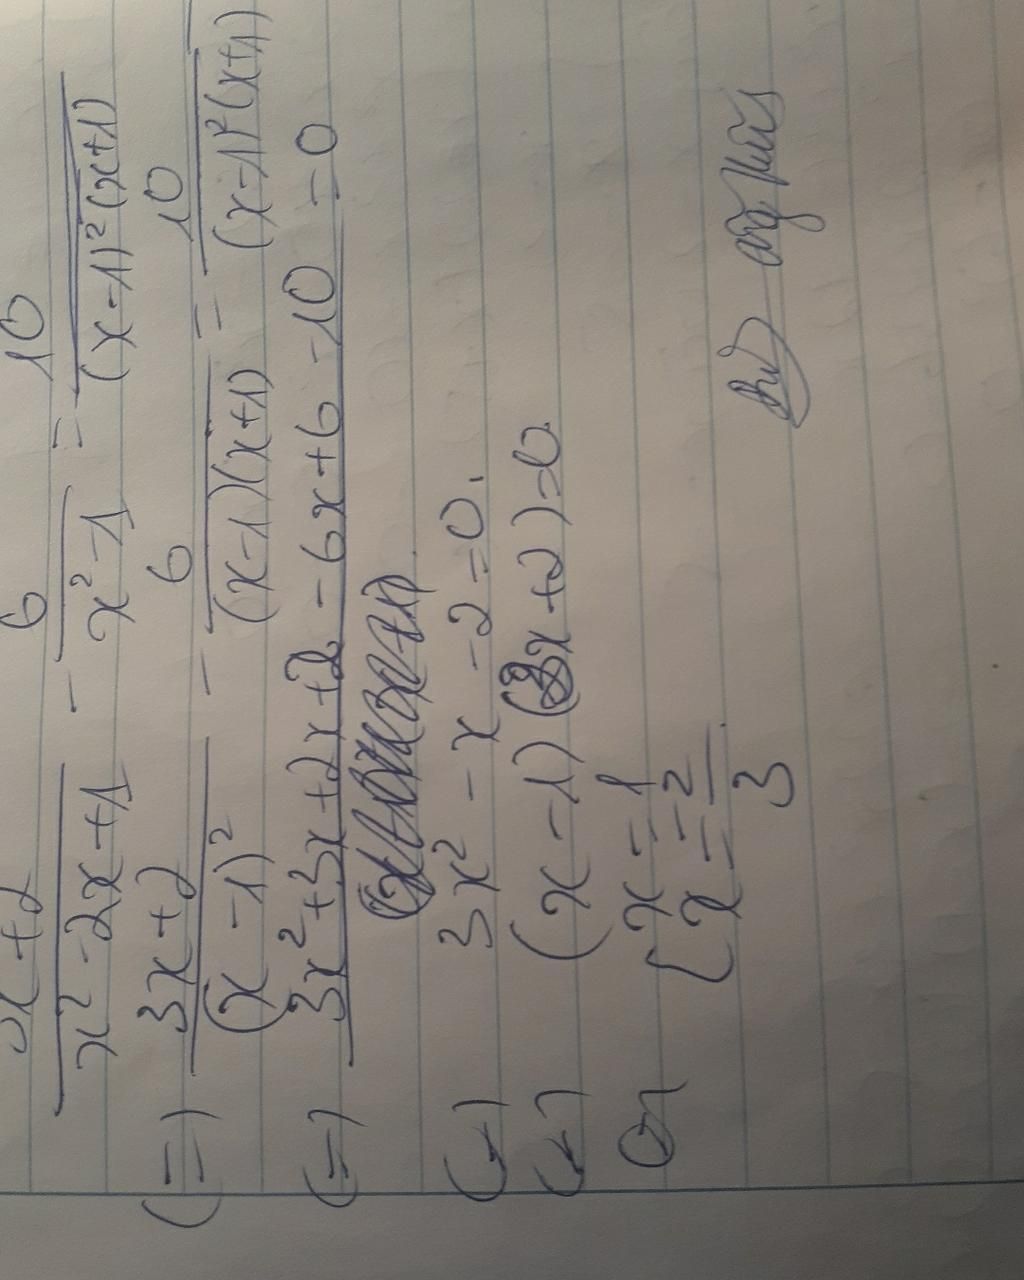 x+2 / x²-2x+1 - 6 / x²-1 = 10 / (x-1)²(x+1)
(=) 3x+2 / (x-1)² - 6 / (x-1)(x+1) = 10 / (x-1)²(x+1)
(=) 3x²+3x+2x+2-6x+6-10=0
(=) 3x²-x-2=0.
(=) (x-1)(3x+2)=0.
[x=1
[x=-2/3